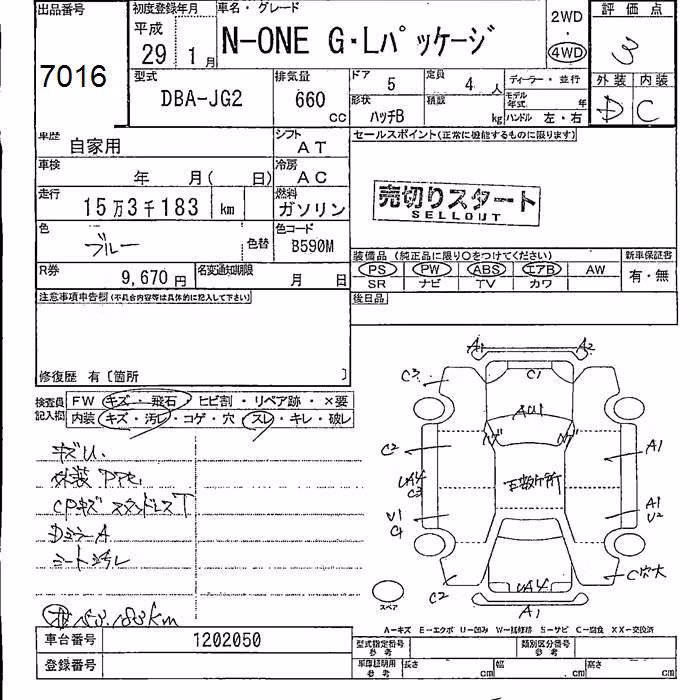 出品番号
7016
初度登録年月
平成
29 1月
車名・グレード
N-ONE G・Lパッケージ
2WD
・
4WD
評価点
3
型式
DBA-JG2
排気量
660
cc
ドア
5
定員
4人
ディーラー・並行
外装 内装
D C
形状
ハッチB
積載
kg
モデル年式 年
ハンドル 左・右
車歴
自家用
シフト
AT
セールスポイント(正常に機能するものに限ります)
車検
年 月( 日)
冷房
AC
走行
15万3千183 km
燃料
ガソリン
売切りスタート
SELLOUT
色
ブルー
色替
色コード
B590M
装備品(純正品に限り○をつけてください)
新車保証書
PS PW ABS エアB AW
有・無
R券
9,670円
名変通知期限
月 日
SR ナビ TV カワ
注意事項申告欄(不具合内容等は具体的に記入して下さい)
後日品
修復歴 有〔箇所 〕
検査員記入欄
FW キズ・飛石・ヒビ割・リペア跡・×要
内装 キズ・汚レ・コゲ・穴・スレ・キレ・破レ
キズU.
CPキズ
DミラーA
シート汚レ
153,183km
A1 A2
C3 C1
AU1
ハゲ ハゲ
C2 A1
UA4
C3
下廻り
U1 A1
U2
C穴大
C2 UA4
A1
スペア
A―キズ E―エクボ U―凹み W―補修跡 S―サビ C―腐食 XX―交換済
車台番号
1202050
登録番号
型式指定番号
参考
類別区分番号
参考
車庫証明用
参考
長さ cm 幅 cm 高さ cm